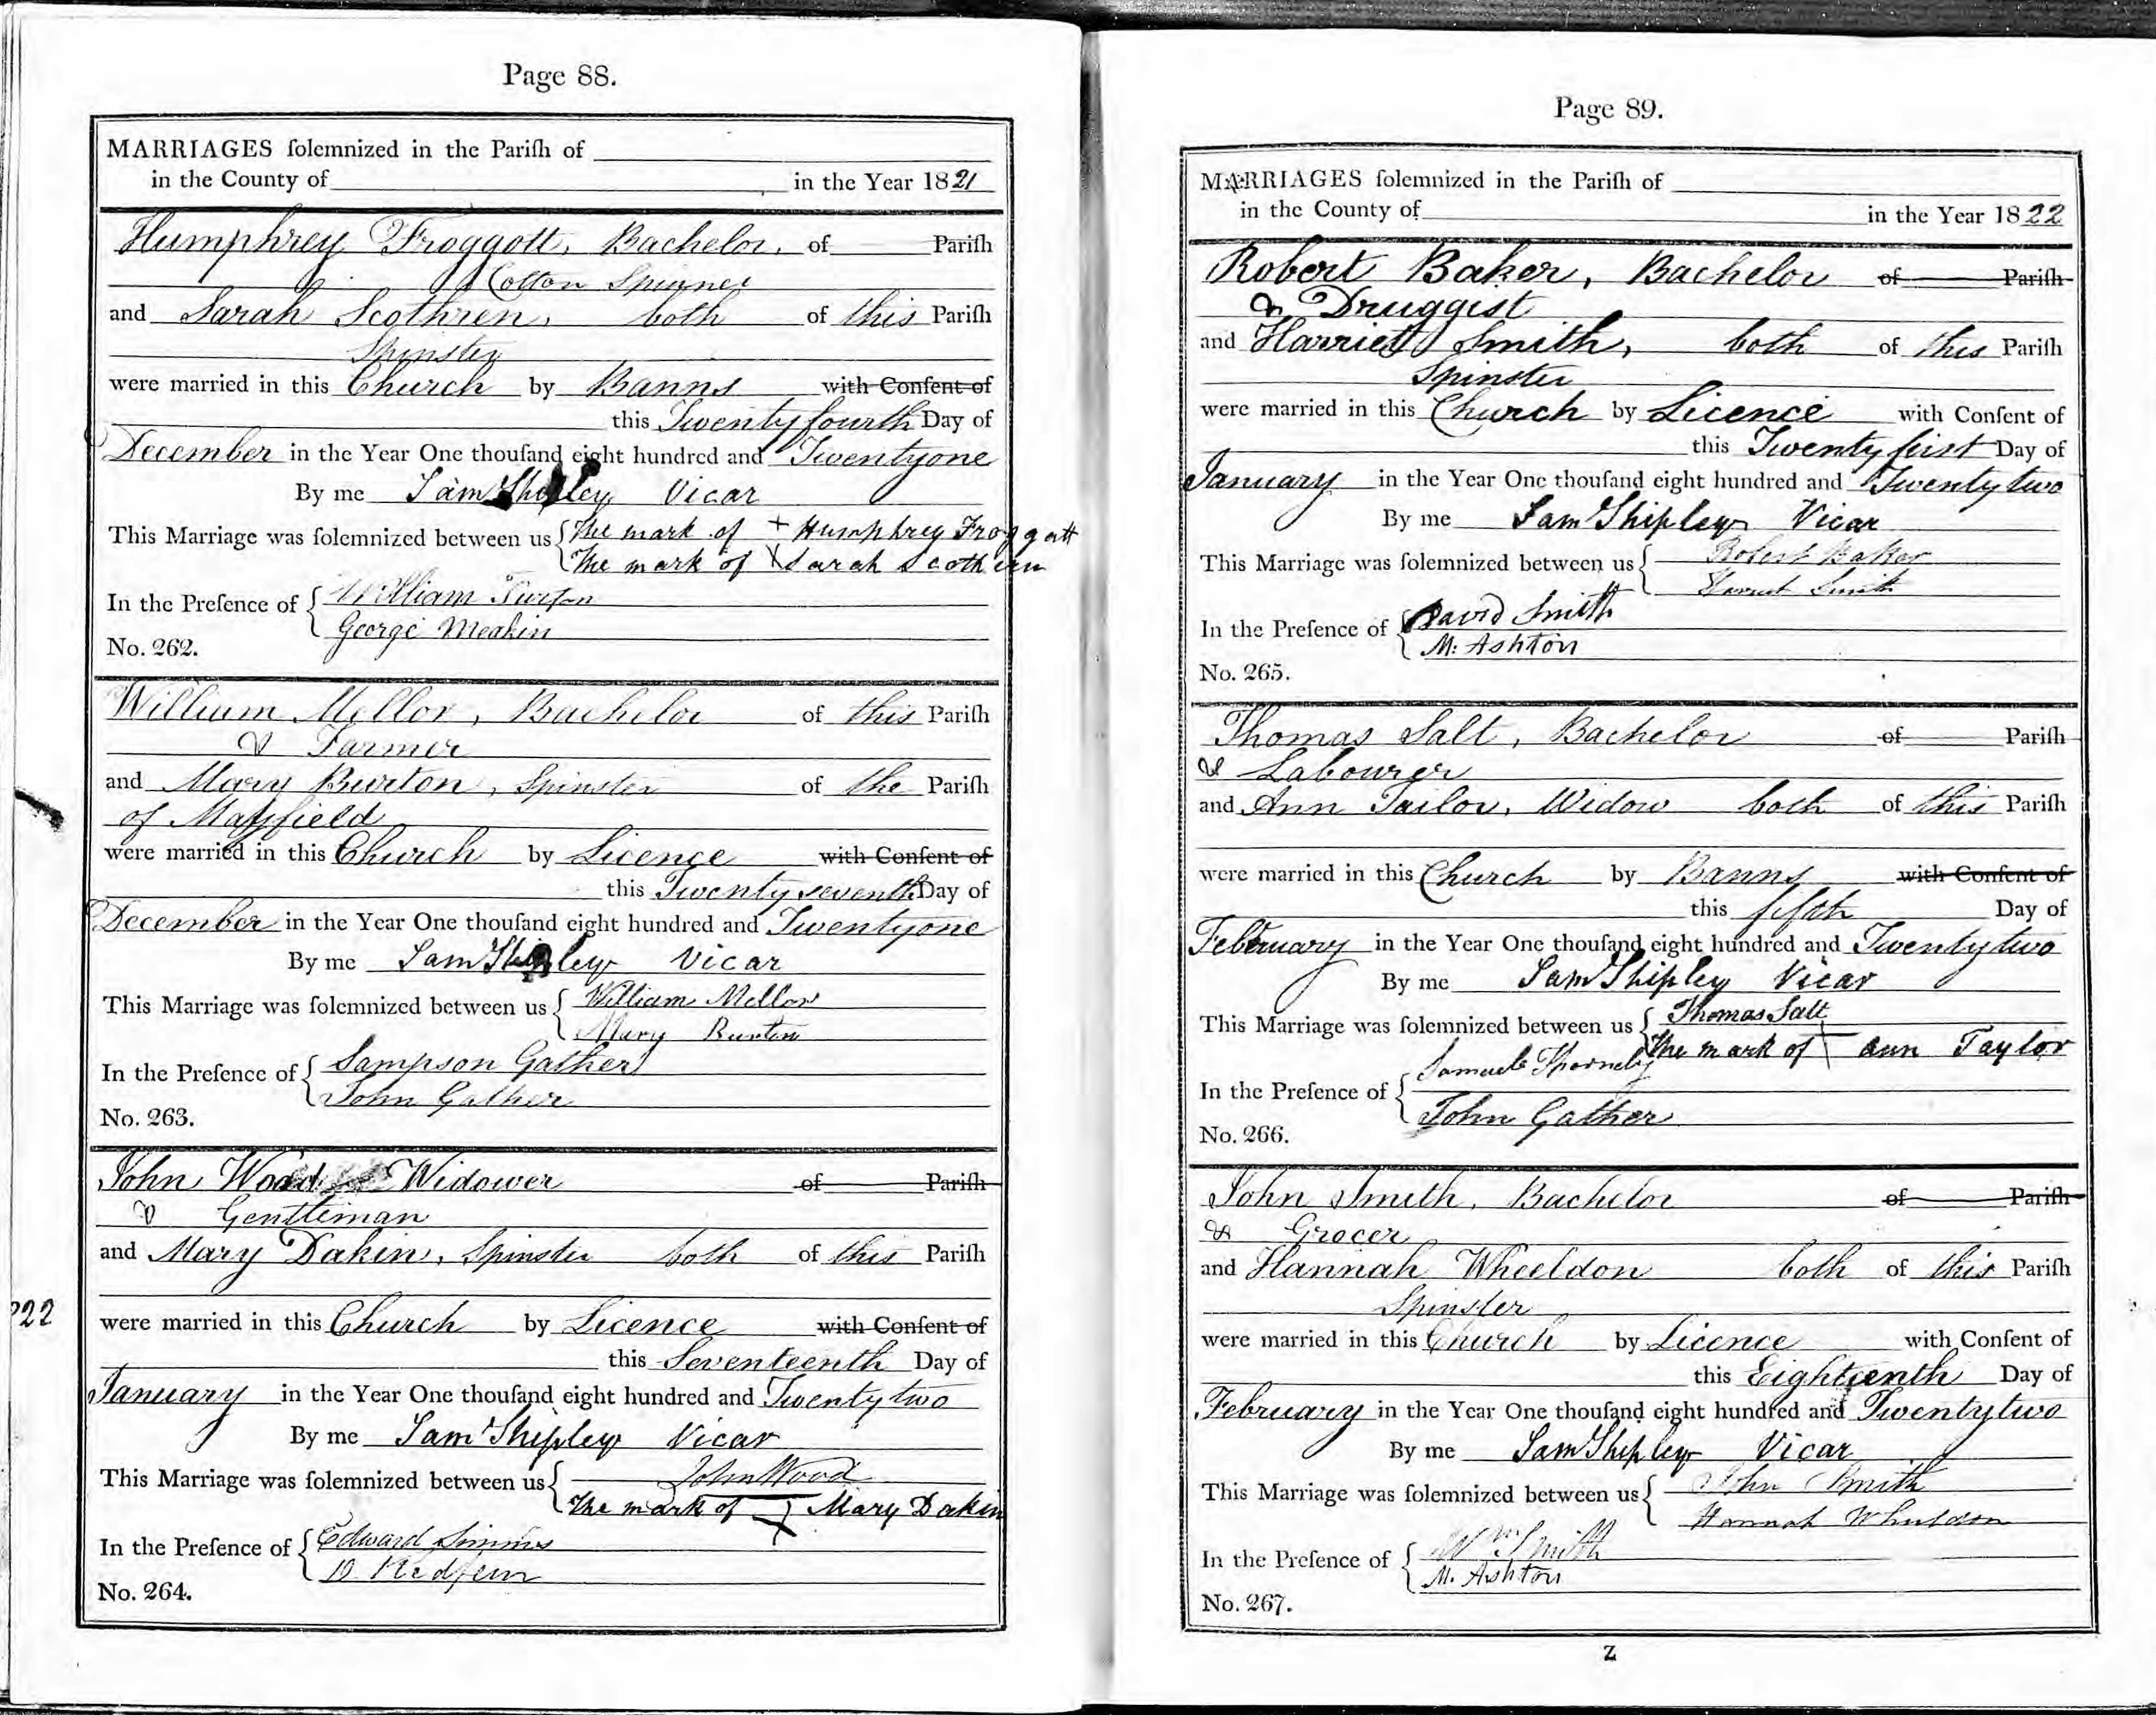 Page 88.
MARRIAGES ſolemnized in the Pariſh of
in the County of in the Year 1821
Humphrey Froggott, Bachelor, of Pariſh
Cotton Spinner
and Sarah Scothren, both of this Pariſh
Spinster
were married in this Church by Banns with Conſent of
this Twenty fourth Day of
December in the Year One thouſand eight hundred and Twentyone
By me Sam Shipley Vicar
This Marriage was ſolemnized between us The mark of + Humphrey Froggatt
The mark of X Sarah Scothern
In the Preſence of William
George Meakin
No. 262.
William Mellor, Bachelor of this Pariſh
& Farmer
and Mary Burton, Spinster of the Pariſh
of Mayfield
were married in this Church by Licence with Conſent of
this Twenty seventh Day of
December in the Year One thouſand eight hundred and Twentyone
By me Sam Shipley Vicar
This Marriage was ſolemnized between us William Mellor
Mary Burton
In the Preſence of Sampson Gather
John Gather
No. 263.
John Wood Widower of Pariſh
& Gentleman
and Mary Dakin, Spinster both of this Pariſh
22
were married in this Church by Licence with Conſent of
this Seventeenth Day of
January in the Year One thouſand eight hundred and Twenty two
By me Sam Shipley Vicar
This Marriage was ſolemnized between us John Wood
The mark of X Mary Dakin
In the Preſence of Edward Simms
D Redfern
No. 264.
Page 89.
MARRIAGES ſolemnized in the Pariſh of
in the County of in the Year 1822
Robert Baker, Bachelor of Pariſh
& Druggist
and Harriet Smith, both of this Pariſh
Spinster
were married in this Church by Licence with Conſent of
this Twenty first Day of
January in the Year One thouſand eight hundred and Twenty two
By me Sam Shipley Vicar
This Marriage was ſolemnized between us Robert Baker
Harriet Smith
In the Preſence of David Smith
M. Ashton
No. 265.
Thomas Salt, Bachelor of Pariſh
& Labourer
and Ann Tailor, Widow both of this Pariſh
were married in this Church by Banns with Conſent of
this fifth Day of
February in the Year One thouſand eight hundred and Twenty two
By me Sam Shipley Vicar
This Marriage was ſolemnized between us Thomas Salt
The mark of + ann Taylor
In the Preſence of Samuel
John Gather
No. 266.
John Smith, Bachelor of Pariſh
& Grocer
and Hannah Wheeldon both of this Pariſh
Spinster
were married in this Church by Licence with Conſent of
this Eighteenth Day of
February in the Year One thouſand eight hundred and Twenty two
By me Sam Shipley Vicar
This Marriage was ſolemnized between us John Smith
Hannah Wheeldon
In the Preſence of Wm Smith
M. Ashton
No. 267.
Z